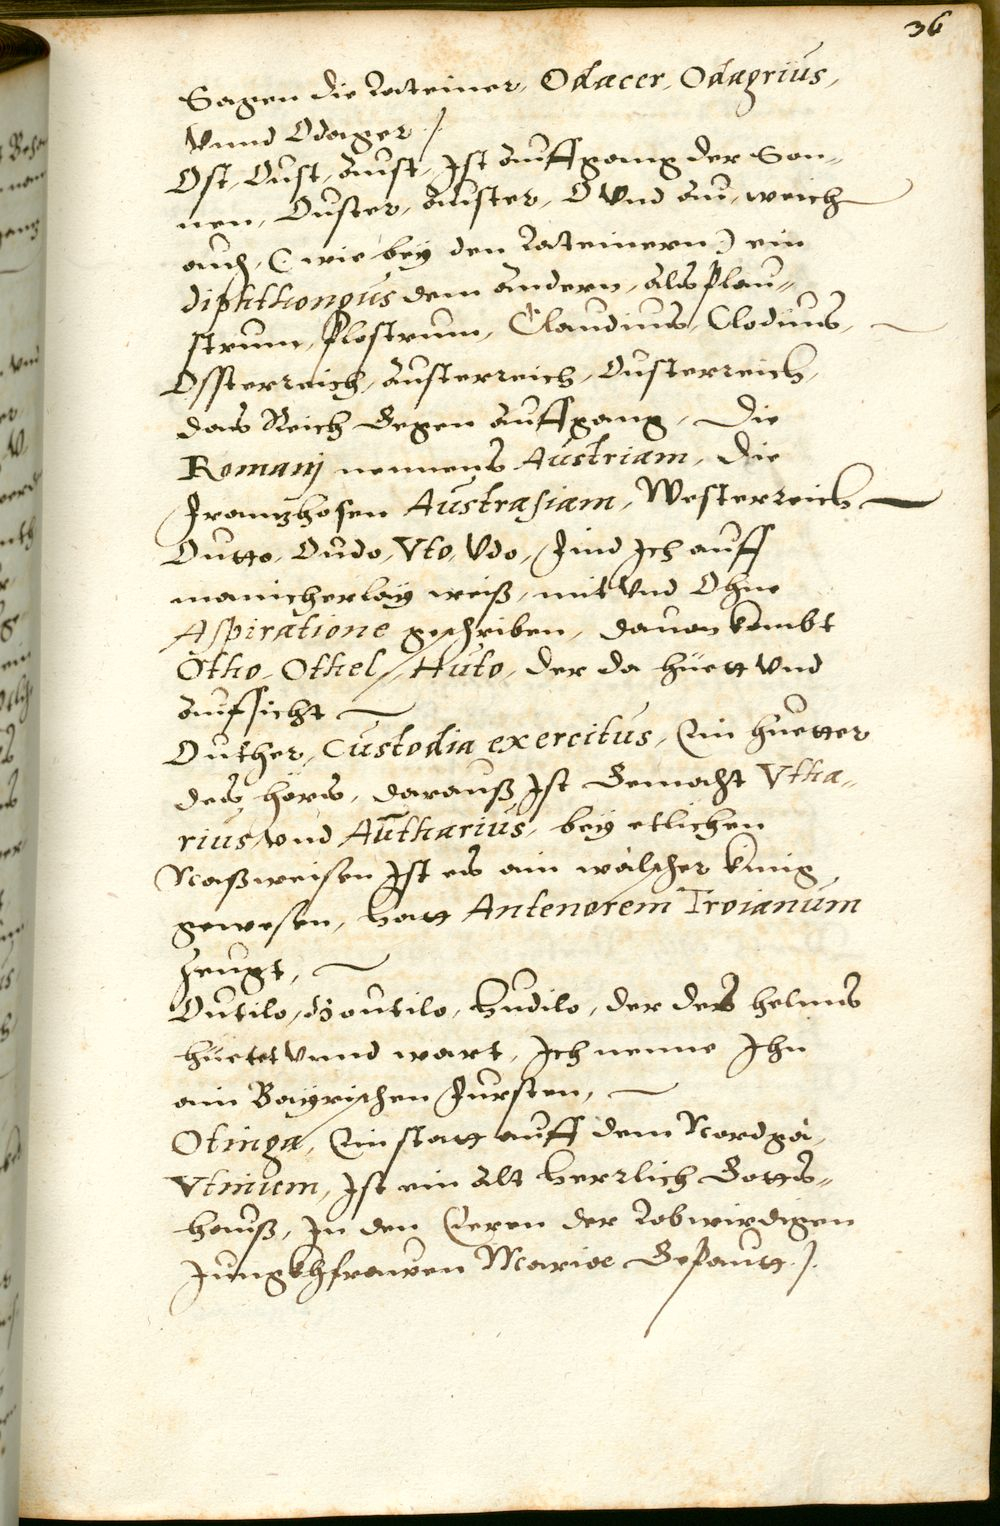 36
Sagen die Lateiner, Odacer, Odagrius,
Vnnd Odager ./.
Ost, Oust, Aust, Ist Auffgang der Son-
nen, Ouster, Auster, O Vnd Au, weich
auch, (wie bey den Lateinern) ein
diphthongus dem Andern, als Plau-
strum, Plostrum, Claudius, Clodius,
Ossterreich, Austerreich, Ousterreich,
das Reich Gegen Auffgang, Die
Romanj nennens Austriam, Die
Frantzhosen Austrasiam, Westerreich
Outto, Oudo, Vto, Vdo, Find Ich auff
manicherlay weiß, mit Vnd Ohne
Aspiratione geschriben, dauon kombt
Otho, Othel, Huto, der da hüett Vnd
Aufsicht
Outher, Custodia exercitus, Ein huetter
des hörs, darauß Ist Gemacht Vtha-
rius, vnd Autharius, bey etlichen
Naßweisen Ist es ain wälscher künig
gewesen, hatt Antenorem Troianum
Zeugt,
Outilo, Goutilo, Hudilo, der des helms
hüetet Vnnd wart, Ich nenne Ihn
ain Bayrischen Fursten,
Otinga, Ein statt auff dem Nordgä,
Vtinum, Ist ein Alt herrlich Gotts-
hauß, In den Eeren der Lobwirdigen
Jungkhfrawen Mariae Gepautt ./.